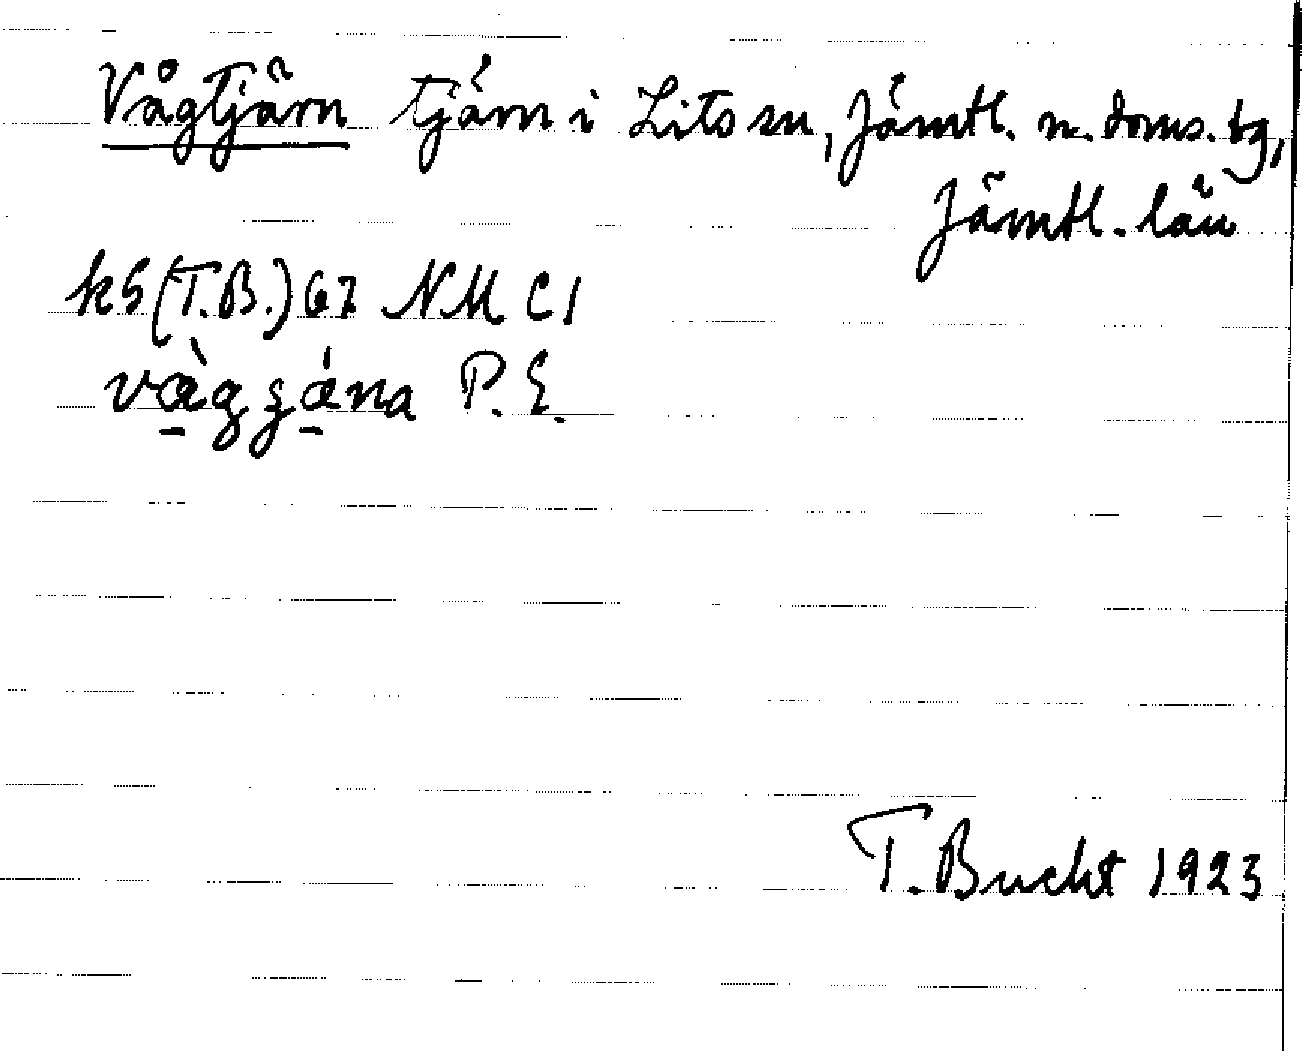 Vågtjärn tjärn i Lits sn, Jämtl. n. doms. tg,
Jämtl. län
kS (T.B.) 67 NM C1
P.E.
T. Bucht 1923